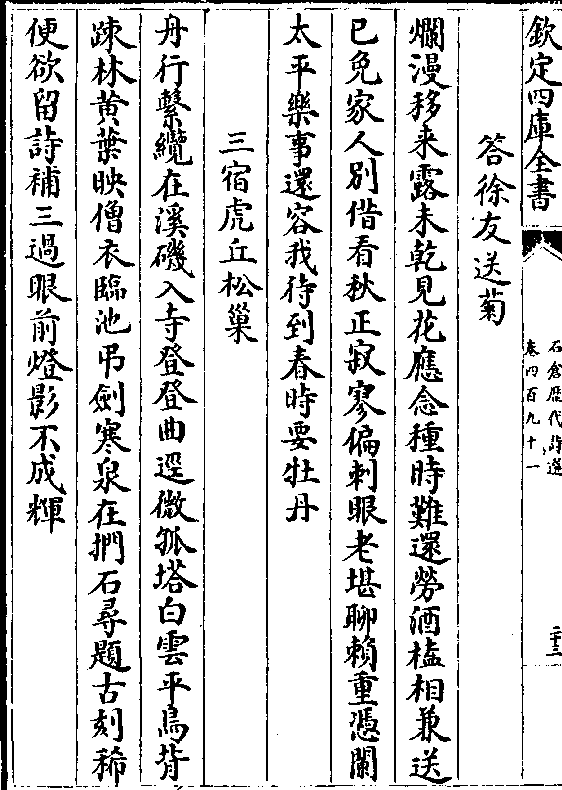 欽定四庫全書
石倉歴代詩選
卷四百九十一
二十三
答徐友送菊
爛漫移来露未乾見花應念種時難還勞酒榼相兼送
已免家人別借看秋正寂寥偏刺眼老堪聊賴重憑闌
太平樂事還容我待到春時要牡丹
三宿虎丘松巢
舟行繫纜在溪磯入寺登登曲逕微孤塔白雲平鳥背
踈林黄葉映僧衣臨池弔劍寒泉在捫石尋題古刻稀
便欲留詩補三過眼前燈影不成輝